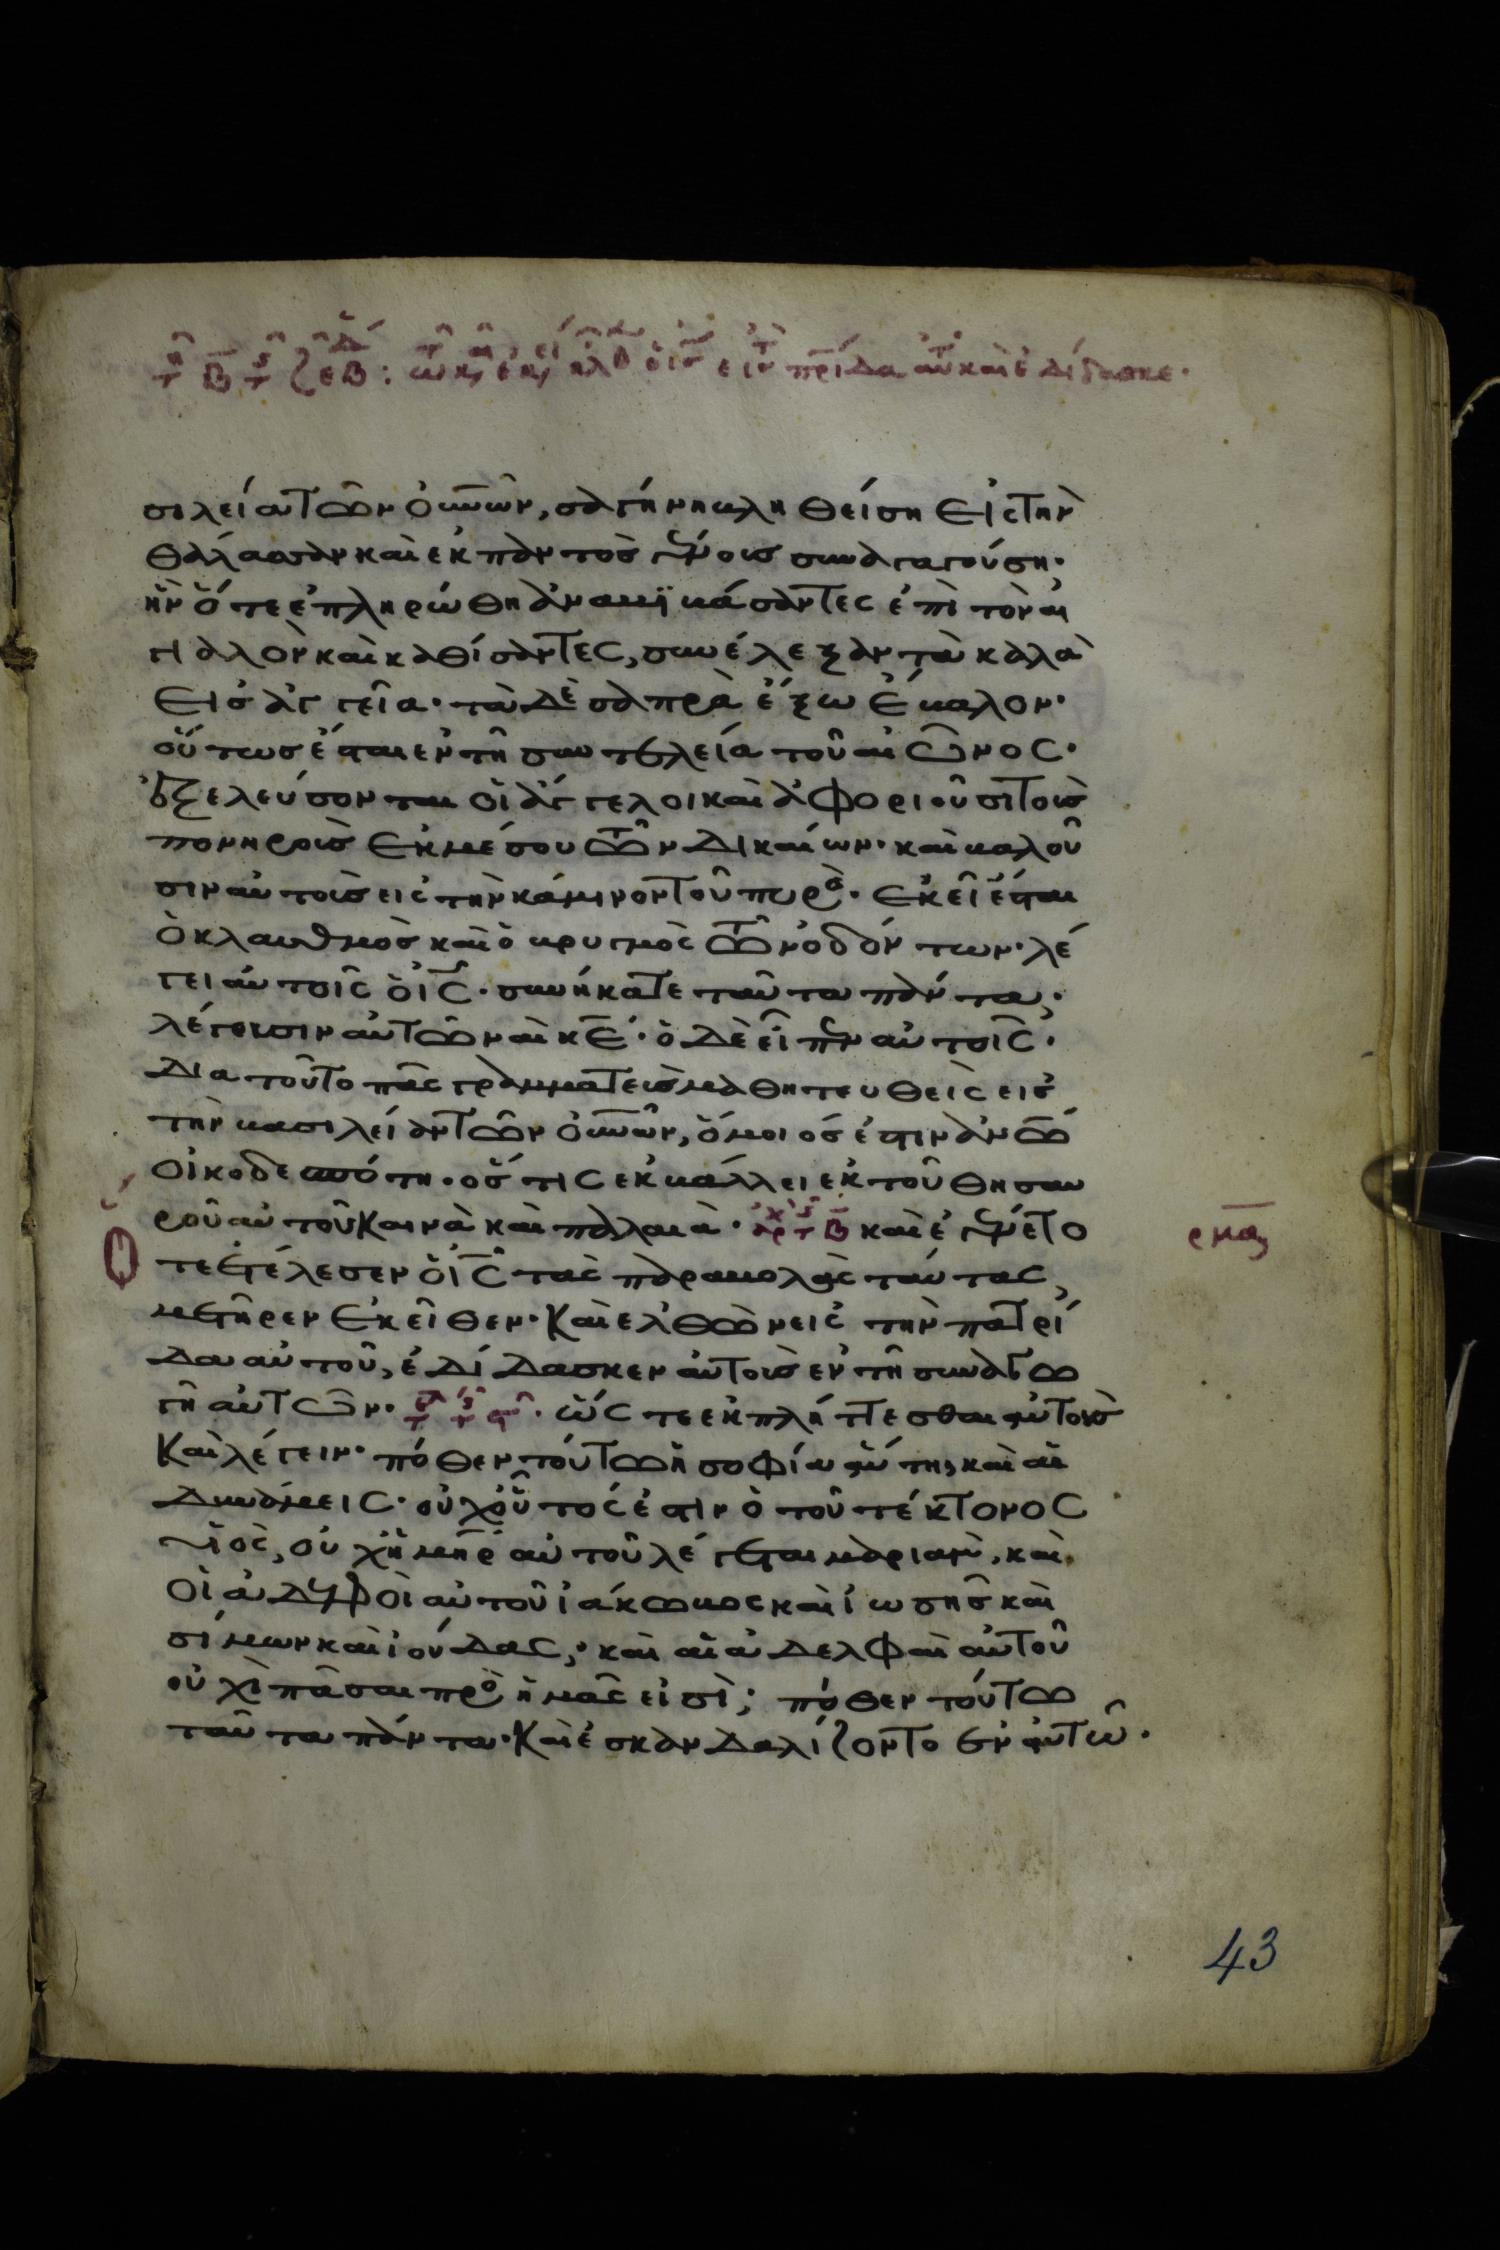 σιλεία τῶν οὐνῶν, σαγήνη βληθείση εἰς τὴν
θάλασσαν καὶ ἐκ παντὸς γένους συναγαγούση·
ἣν ὅτε ἐπληρώθη ἀναβιβάσαντες ἐπὶ τὸν αἰ
γιαλὸν καὶ καθίσαντες, συνέλεξαν τὰ καλὰ
εἰς ἀγγεῖα· τὰ δὲ σαπρὰ ἔξω ἔβαλον·
οὕτως ἔσται ἐν τῇ συντελεία τοῦ αἰῶνος·
ἐξελεύσονται οἱ ἄγγελοι καὶ ἀφοριοῦσι τοὺς
πονηροὺς ἐκ μέσου τῶν δικαίων· καὶ βαλοῦ
σιν αὐτοὺς εἰς τὴν κάμινον τοῦ πυρὸς· ἐκεῖ ἔσται
ὁ κλαυθμὸς καὶ ὁ βρυγμὸς τῶν ὀδόντων· λέ
γει αὐτοῖς ὁ ις· συνήκατε ταῦτα πάντα;
λέγουσιν αὐτῶ ναὶ κε· ὁ δὲ εἶπεν αὐτοῖς·
διὰ τοῦτο πᾶς γραμματεὺς μαθητευθεὶς εἰς
τὴν βασιλείαν τῶν οὐνῶν, ὅμοιός ἐστιν ἀνω
οἰκοδεσπότη· ὅστις ἐκβάλλει ἐκ τοῦ θησαυ
ροῦ αὐτοῦ καινὰ καὶ παλαιά· καὶ ἐγένετο
ὅτε ἐτέλεσεν ὁ ις τὰς παραβολὰς ταύτας,
μετῆρεν ἐκεῖθεν· καὶ ἐλθὼν εἰς τὴν πατρί
δα αὐτοῦ, ἐδίδασκεν αὐτοὺς ἐν τῇ συναγω
γῇ αὐτῶν· ὥστε ἐκπλήττεσθαι αὐτοὺς
καὶ λέγειν· πόθεν τούτω ἡ σοφία αὕτη, καὶ αἱ
δυνάμεις· οὐχ οὗτός ἐστιν ὁ τοῦ τέκτονος
υἱὸς, οὐχὴ μηρ αὐτοῦ λέγεται μαριὰμ, καὶ
οἱ ἀδελφοὶ αὐτοῦ ἰάκωβος καὶ ἰωσῆς καὶ
σίμων καὶ ἰούδας; καὶ αἱ ἀδελφαὶ αὐτοῦ
οὐχὶ πᾶσαι πρὸς ἡμᾶς εἰσὶ; πόθεν τούτω
ταῦτα πάντα· καὶ ἐσκανδαλίζοντο ἐν αὐτῶ·
43